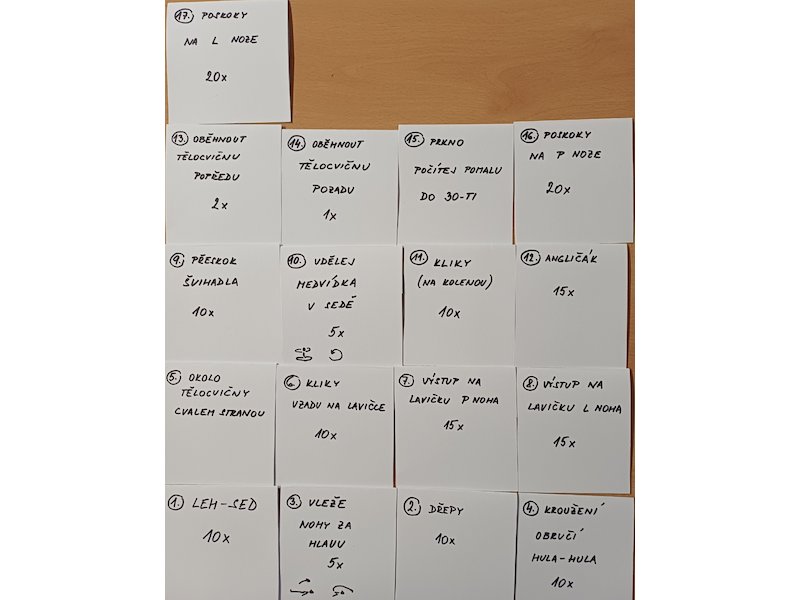 17. POSKOKY
NA L NOZE
20x
13. OBĚHNOUT
TĚLOCVIČNU
POPŘEDU
2x
14. OBĚHNOUT
TĚLOCVIČNU
POZADU
1x
15. PRKNO
POČÍTEJ POMALU
DO 30-TI
16. POSKOKY
NA P NOZE
20x
9. PŘESKOK
ŠVIHADLA
10x
10. UDĚLEJ
MEDVÍDKA
V SEDĚ
5x
11. KLIKY
(NA KOLENOU)
10x
12. ANGLIČÁK
15x
5. OKOLO
TĚLOCVIČNY
CVALEM STRANOU
6. KLIKY
VZADU NA LAVIČCE
10x
7. VÝSTUP NA
LAVIČKU P NOHA
15x
8. VÝSTUP NA
LAVIČKU L NOHA
15x
1. LEH-SED
10x
3. VLEŽE
NOHY ZA
HLAVU
5x
2. DŘEPY
10x
4. KROUŽENÍ
OBRUČÍ
HULA-HULA
10x